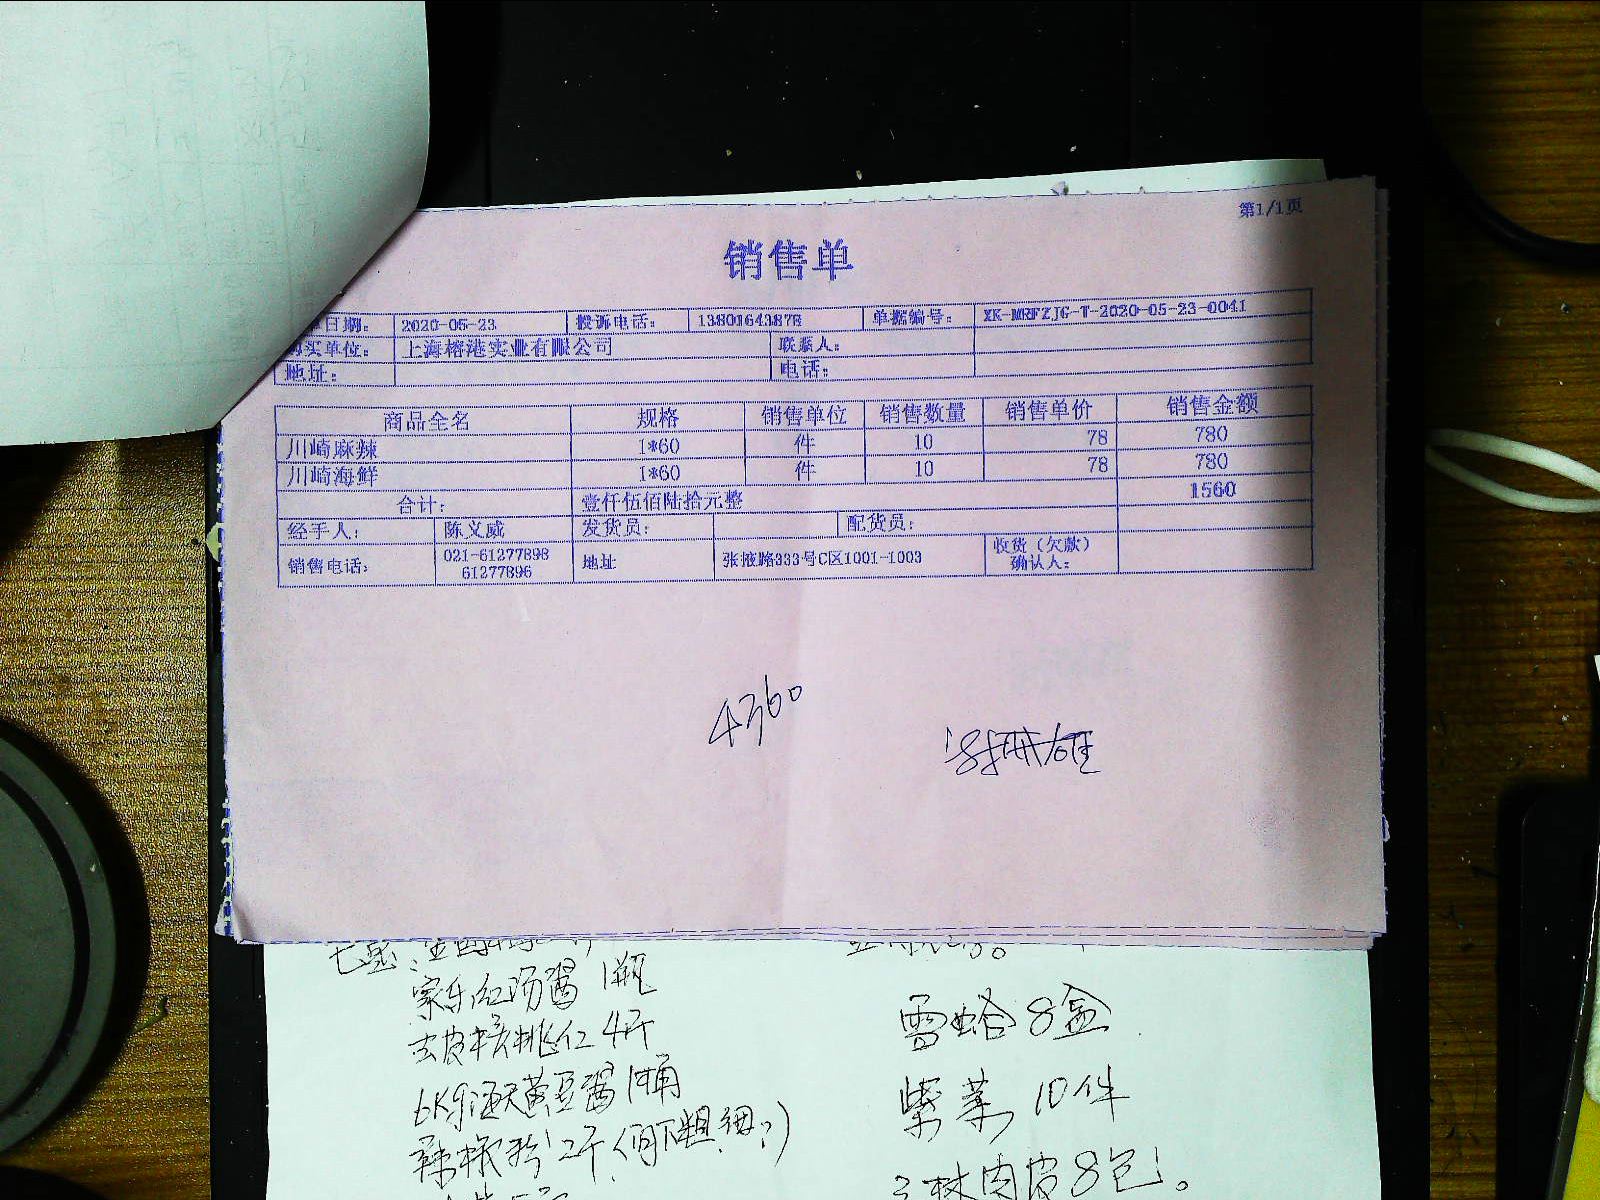 第1/1页
销售单
日期： 2020-05-23 投诉电话： 13801643878 单据编号： XK-MRFZJG-T-2020-05-23-0041
购买单位： 上海榕港实业有限公司 联系人：
地址： 电话：
商品全名 规格 销售单位 销售数量 销售单价 销售金额
川崎麻辣 1*60 件 10 78 780
川崎海鲜 1*60 件 10 78 780
合计： 壹仟伍佰陆拾元整 1560
经手人： 陈义威 发货员： 配货员：
销售电话： 021-61277898 61277896 地址 张掖路333号C区1001-1003 收货（欠款）确认人：
4360
家乐红汤酱 1瓶
去皮核桃仁 4斤
6Kg海天黄豆酱 1桶
辣椒粉 2斤
雪蛤 8盒
紫菜 10件
肉皮 8包！。